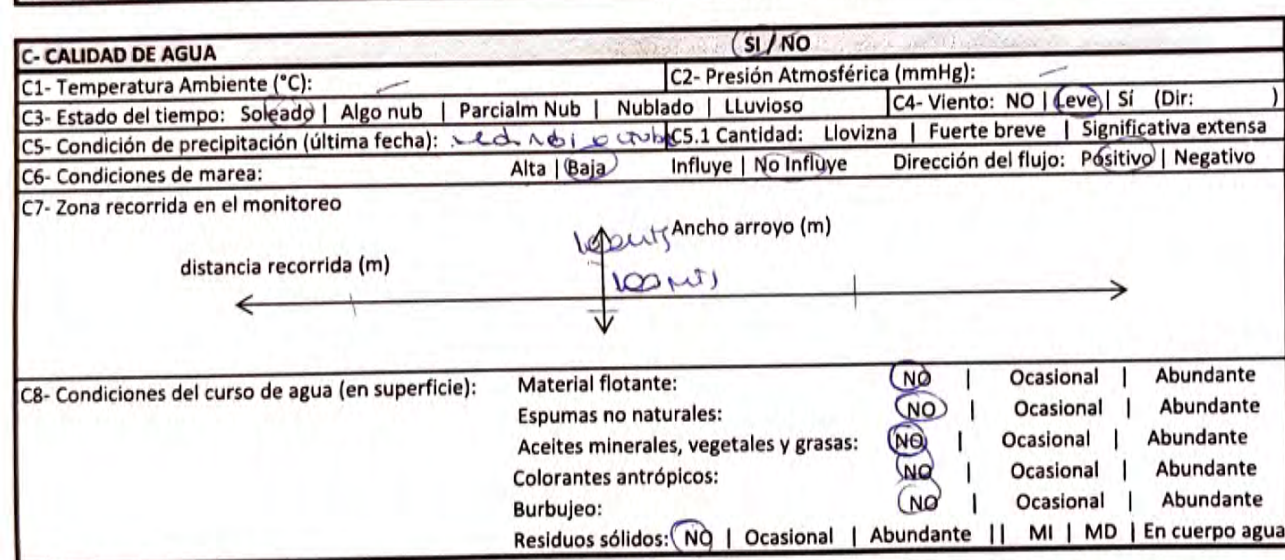 C- CALIDAD DE AGUA SI / NO
C1- Temperatura Ambiente (°C): — C2- Presión Atmosférica (mmHg): —
C3- Estado del tiempo: Soleado | Algo nub | Parcialm Nub | Nublado | LLuvioso C4- Viento: NO | Leve | Sí (Dir: )
C5- Condición de precipitación (última fecha): C5.1 Cantidad: Llovizna | Fuerte breve | Significativa extensa
C6- Condiciones de marea: Alta | Baja Influye | No Influye Dirección del flujo: Positivo | Negativo
C7- Zona recorrida en el monitoreo
Ancho arroyo (m)
distancia recorrida (m)
100 MTS
C8- Condiciones del curso de agua (en superficie): Material flotante: NO | Ocasional | Abundante
Espumas no naturales: NO | Ocasional | Abundante
Aceites minerales, vegetales y grasas: NO | Ocasional | Abundante
Colorantes antrópicos: NO | Ocasional | Abundante
Burbujeo: NO | Ocasional | Abundante
Residuos sólidos: NO | Ocasional | Abundante || MI | MD | En cuerpo agua